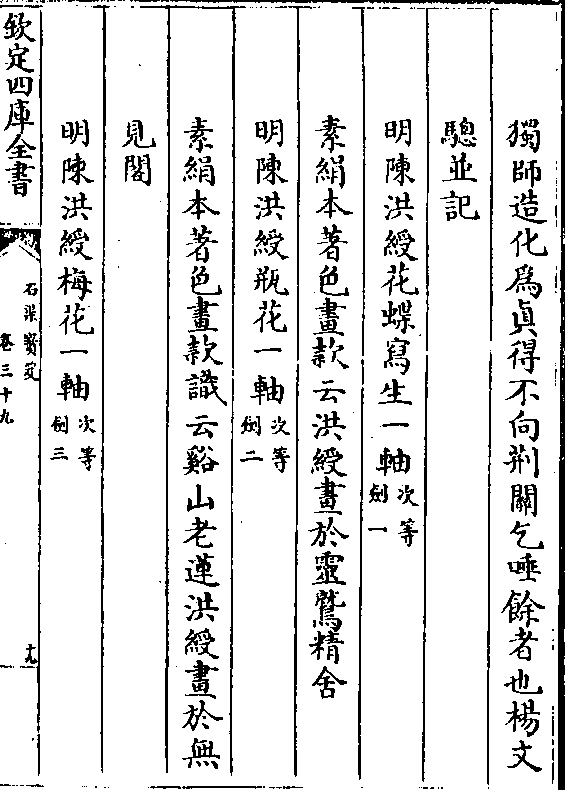 獨師造化爲眞得不向荆關乞唾餘者也楊文
驄並記
明陳洪綬花蝶寫生一軸次等劍一
素絹本著色畫款云洪綬畫於靈鷲精舍
明陳洪綬瓶花一軸次等劍二
素絹本著色畫款識云谿山老蓮洪綬畫於無
見閣
明陳洪綬梅花一軸次等劍三
欽定四庫全書
石渠寳笈
卷三十九
十九